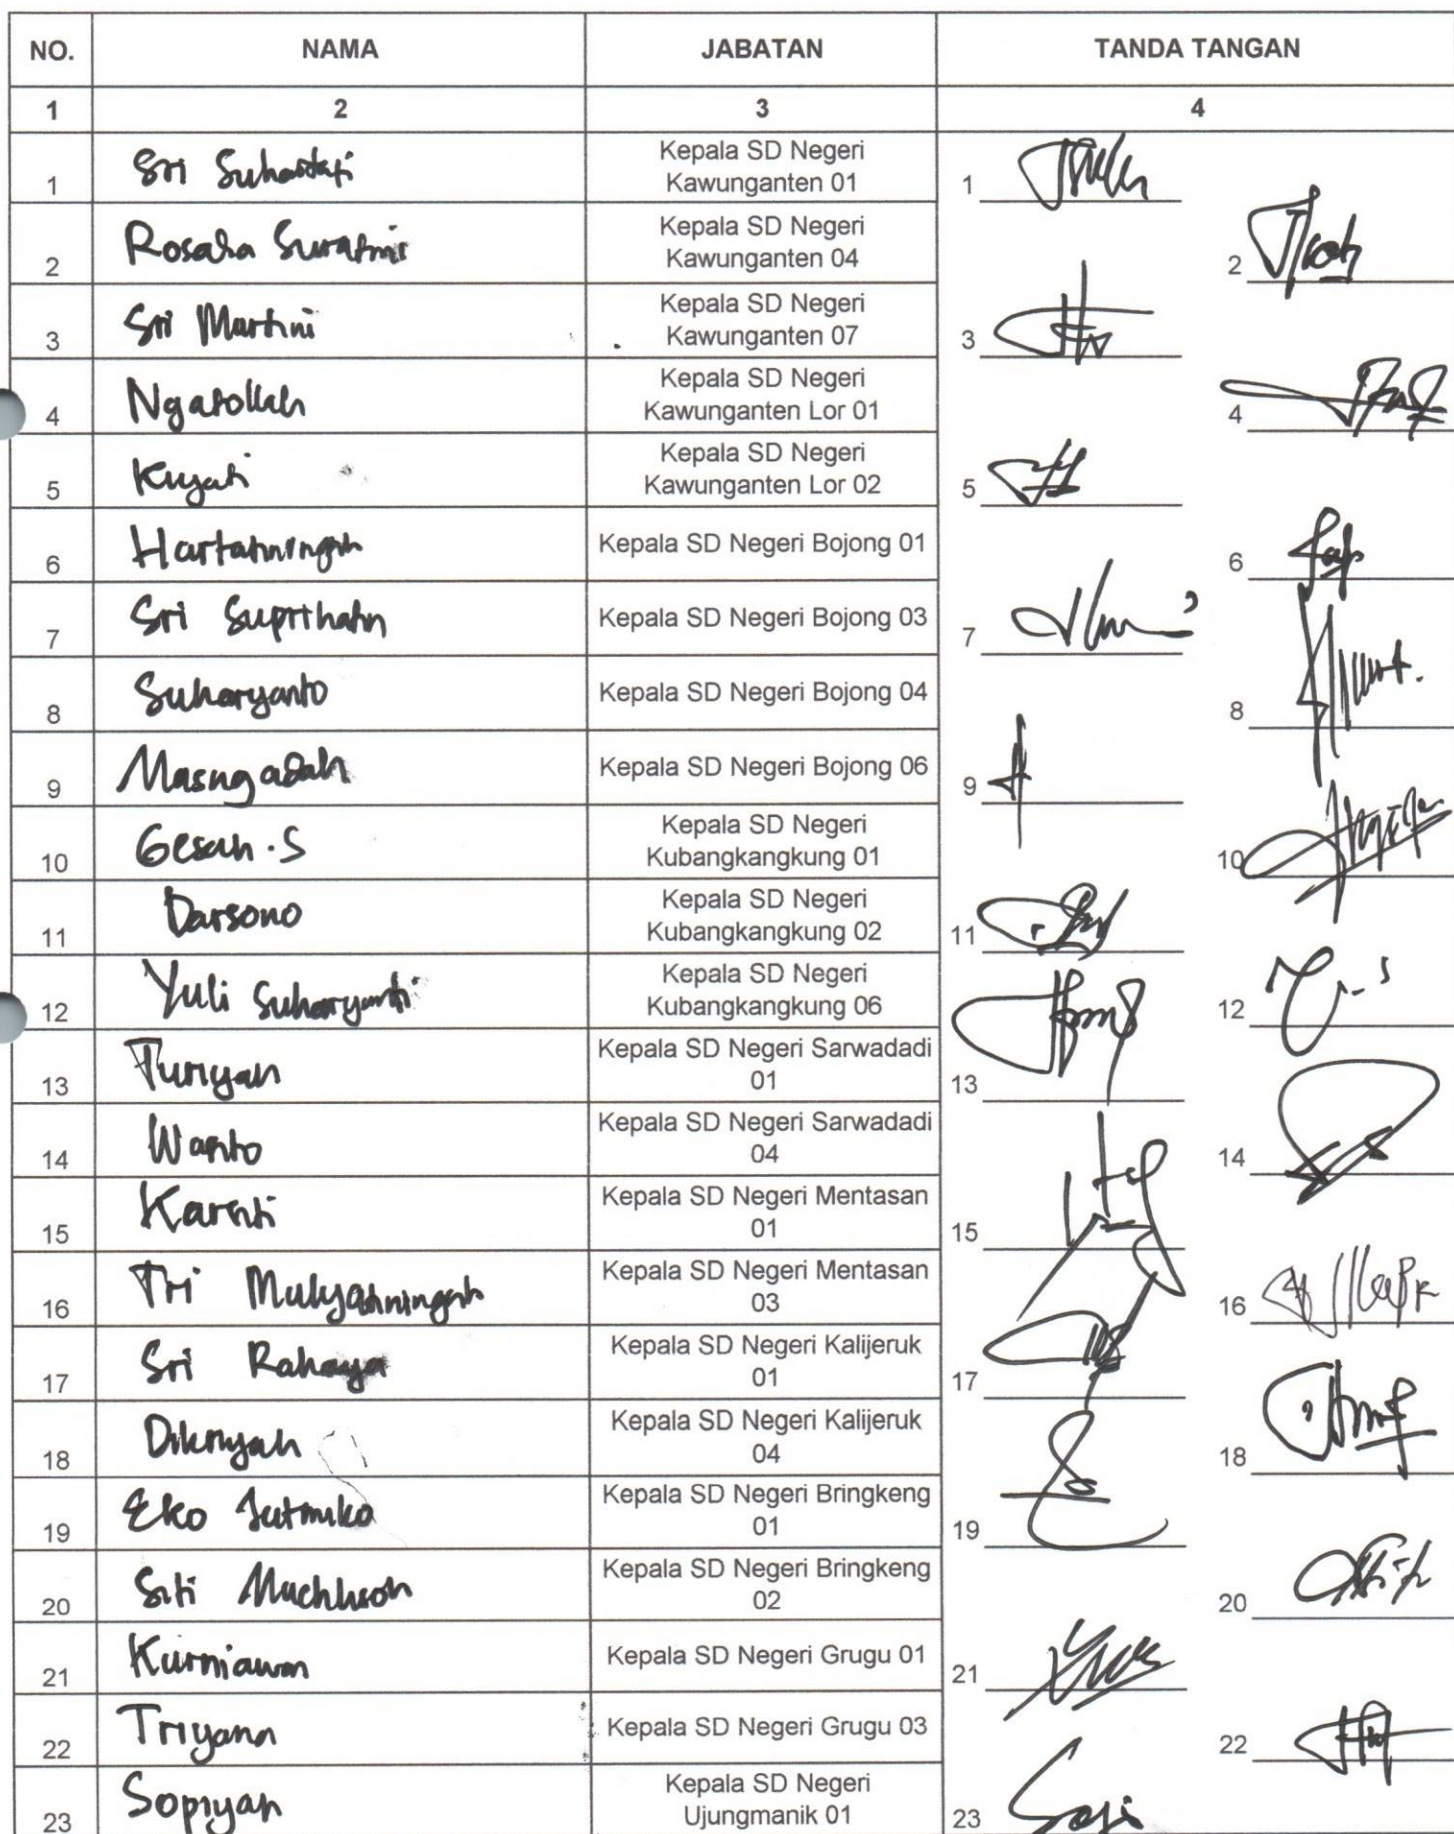 NO. NAMA JABATAN TANDA TANGAN
1 2 3 4
1 Sri Suhartati Kepala SD Negeri
Kawunganten 01 1
2 Rosalia Suratmi Kepala SD Negeri
Kawunganten 04 2
3 Sri Martini Kepala SD Negeri
Kawunganten 07 3
4 Kepala SD Negeri
Kawunganten Lor 01 4
5 Kuyati Kepala SD Negeri
Kawunganten Lor 02 5
6 Hartatiningsih Kepala SD Negeri Bojong 01 6
7 Sri Suprihatin Kepala SD Negeri Bojong 03 7
8 Suharyanto Kepala SD Negeri Bojong 04 8
9 Masngadah Kepala SD Negeri Bojong 06 9
10 Gesah .S Kepala SD Negeri
Kubangkangkung 01 10
11 Darsono Kepala SD Negeri
Kubangkangkung 02 11
12 Yuli Suharyanti Kepala SD Negeri
Kubangkangkung 06 12
13 Turiyah Kepala SD Negeri Sarwadadi
01 13
14 Warito Kepala SD Negeri Sarwadadi
04 14
15 Karsiti Kepala SD Negeri Mentasan
01 15
16 Tri Mulyatiningsih Kepala SD Negeri Mentasan
03 16
17 Sri Rahayu Kepala SD Negeri Kalijeruk
01 17
18 Kepala SD Negeri Kalijeruk
04 18
19 Eko Jatmiko Kepala SD Negeri Bringkeng
01 19
20 Siti Kepala SD Negeri Bringkeng
02 20
21 Kurniawan Kepala SD Negeri Grugu 01 21
22 Triyana Kepala SD Negeri Grugu 03 22
23 Sopiyah Kepala SD Negeri
Ujungmanik 01 23